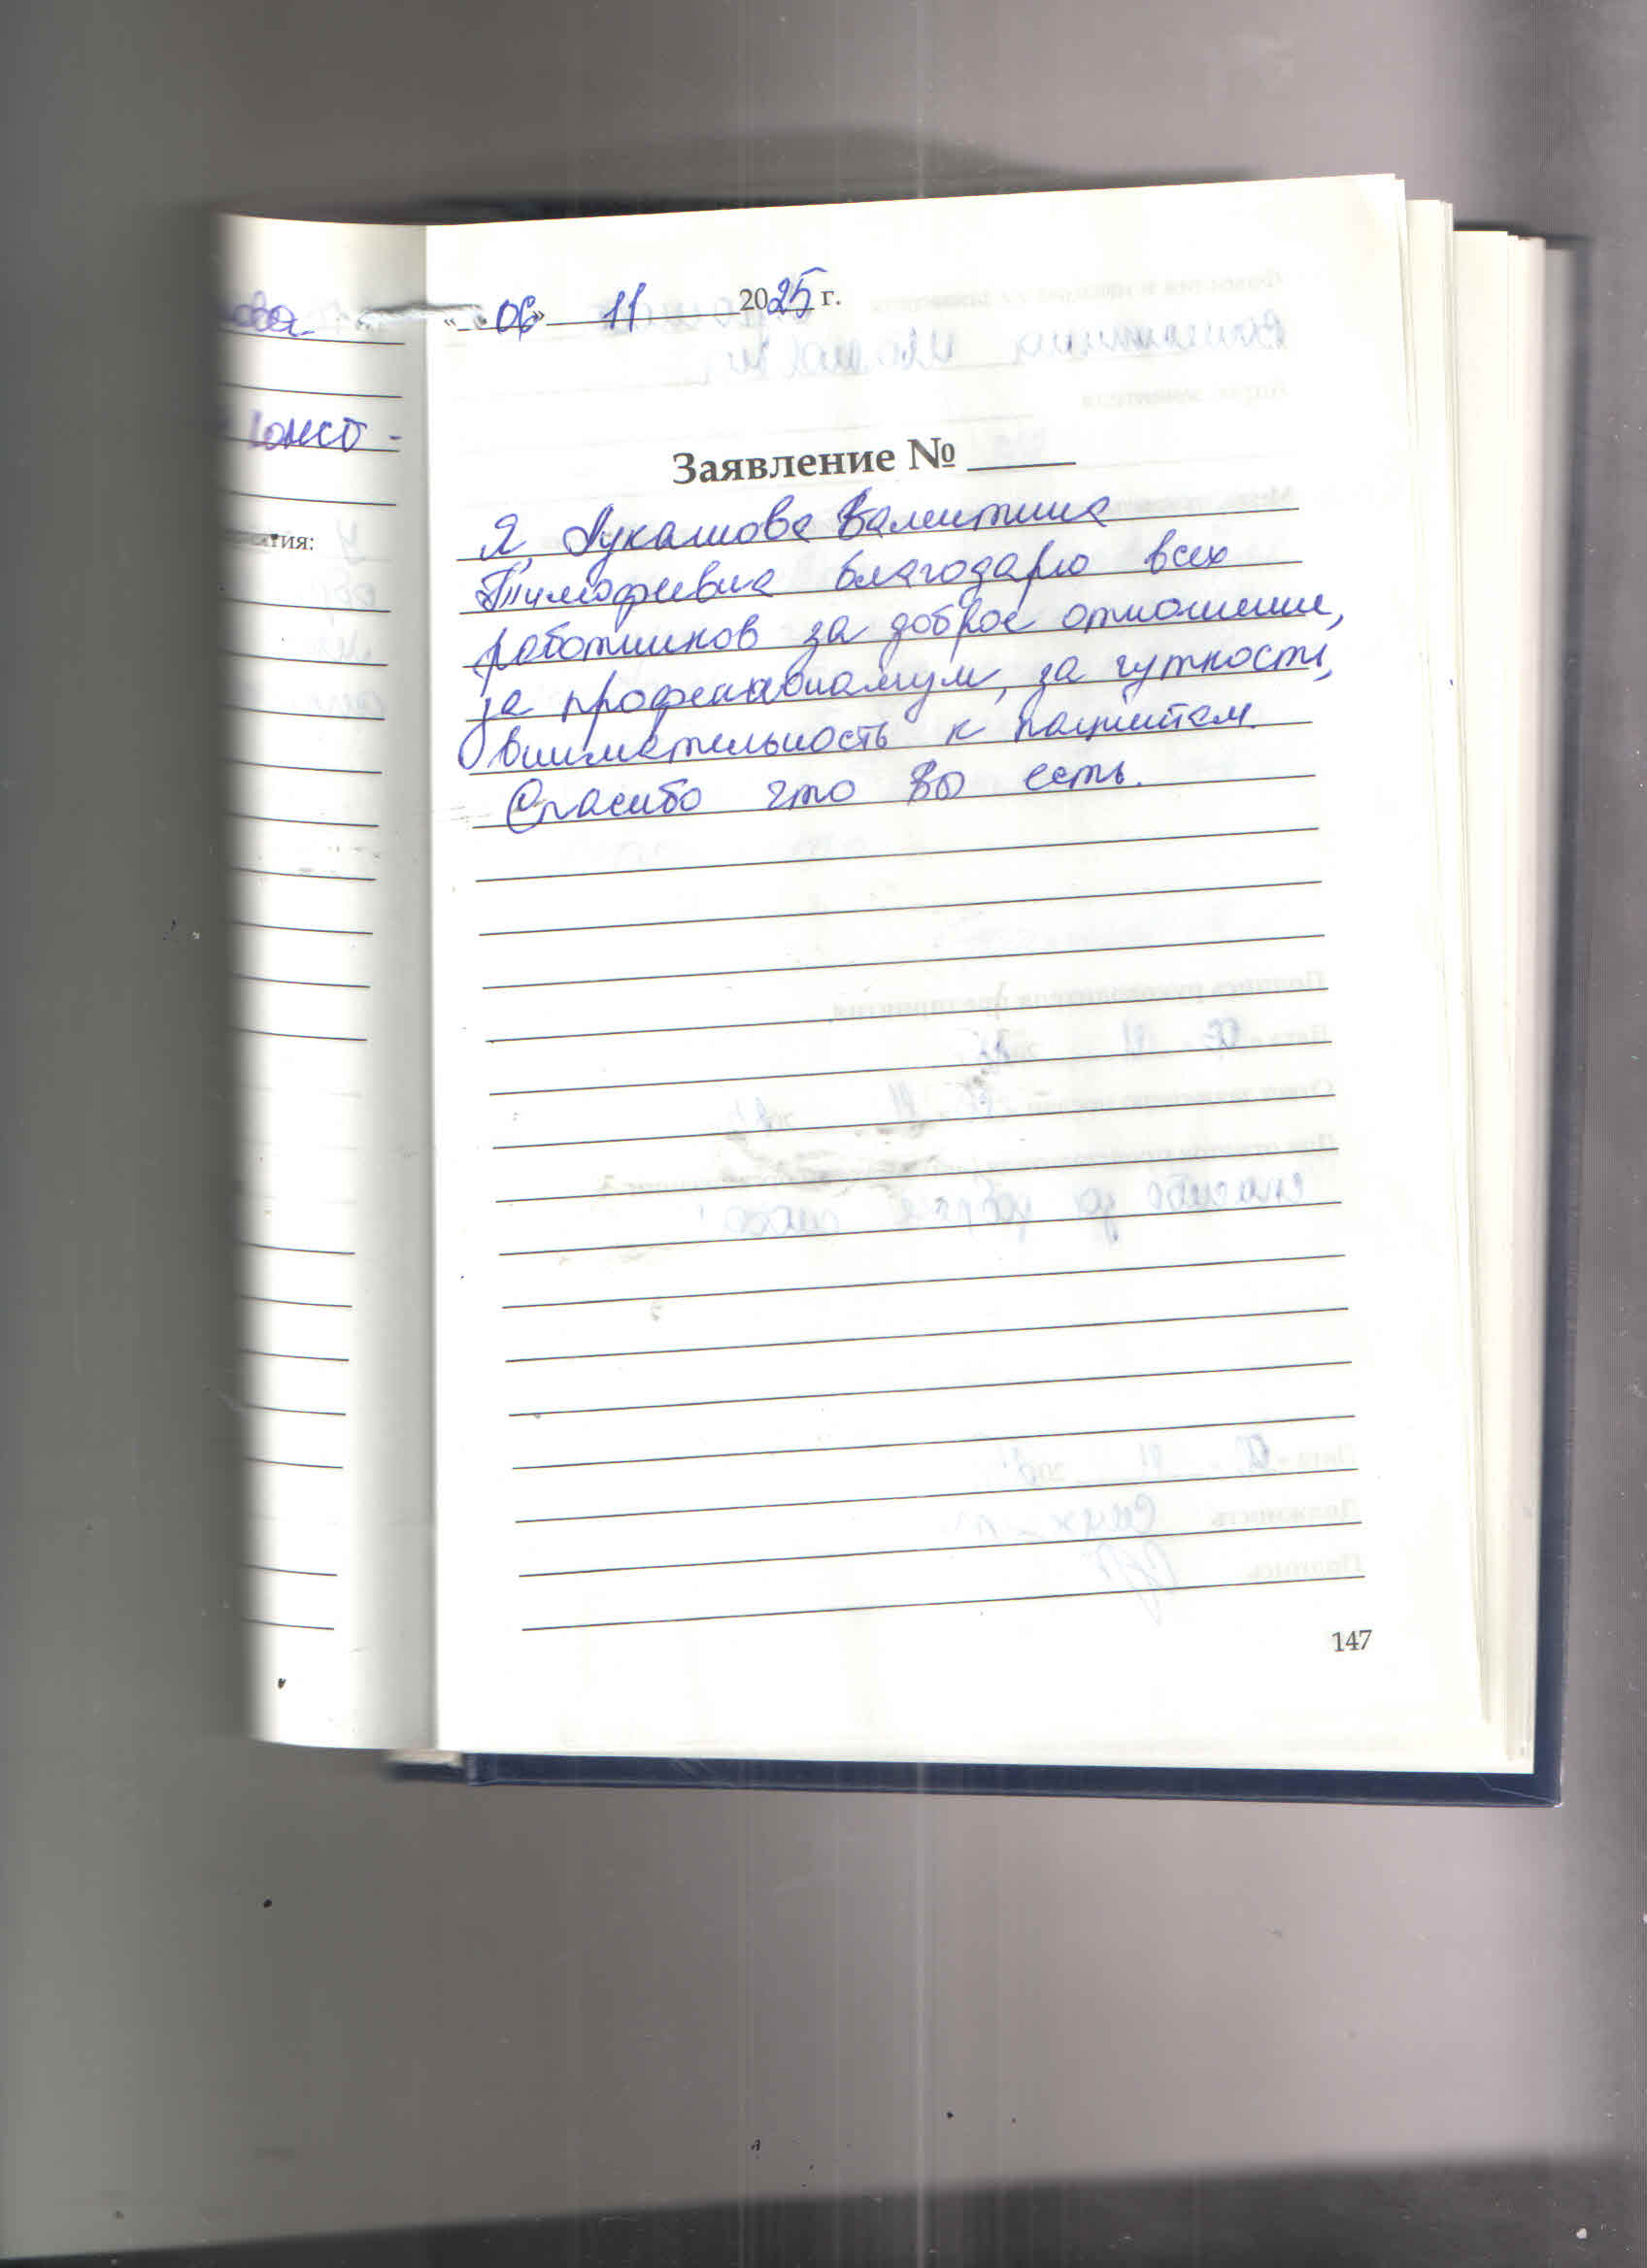 «06» 11 2025 г.
Заявление №
Я, Лукашова Валентина
Тимофеевна благодарю всех
работников за доброе отношение,
за за чуткость,
внимательность к пациентам.
Спасибо что Вы есть.
147
ова.
тия: